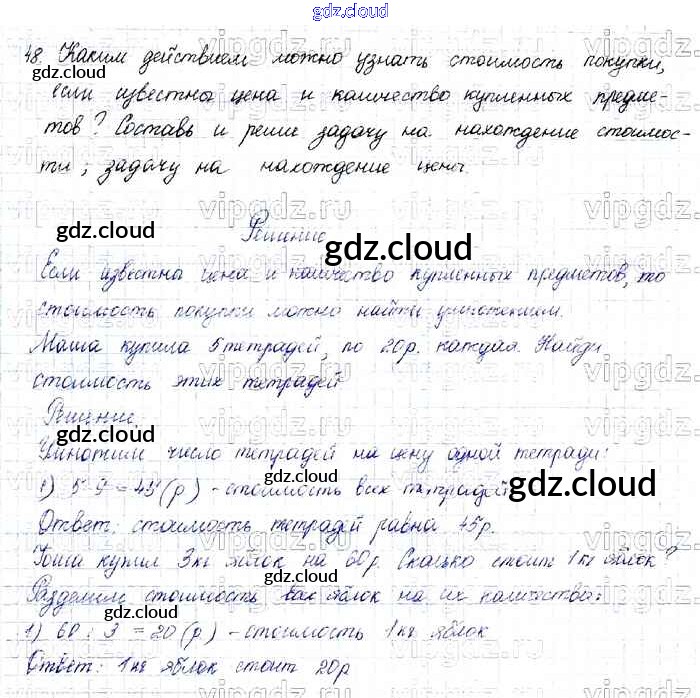 gdz.cloud
48. Каким действием можно узнать стоимость покупки,
если известны цена и количество купленных предме-
тов? Составь и реши задачу на нахождение стоимос-
ти; задачу на нахождение цены.
Решение
Если известна цена и количество купленных предметов, то
стоимость покупки можно найти умножением.
Маша купила 5 тетрадей, по 20р. каждая. Найди
стоимость этих тетрадей
Решение.
Умножим число тетрадей на цену одной тетради:
1) 5·9=45(р) - стоимость всех тетрадей
Ответ: стоимость тетрадей равна 45р.
купил 3кг яблок на 60р. Сколько стоит 1кг яблок?
Разделим стоимость всех яблок на их количество:
1) 60:3=20(р) - стоимость 1кг яблок
Ответ: 1кг яблок стоит 20р